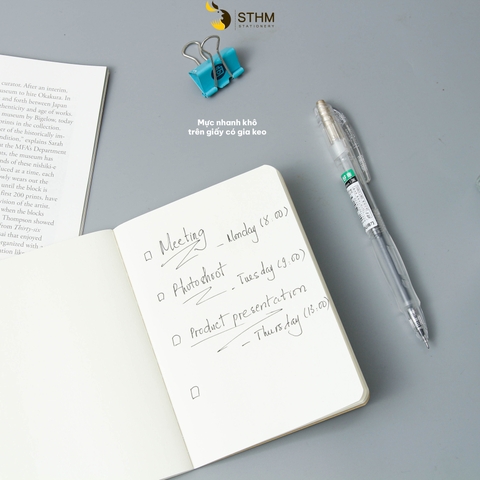 STHM
STATIONERY
Mực nhanh khô
trên giấy có gia keo
curator. After an interim
means to hire Okakura. In
and forth between Japan
thenticity and age of works
by Bigelow, today
wints in the collection.
er of the historically im-
condition," explains Sarah
the MFA's Department
s, the museum has
nds of these nishiki-e
duced at a time, each
owly wears out the
until the block is
first 200 prints, have
vision of the artist.
when the blocks
Thompson showed
From Thirty-six
that enjoyed
organized with
Meeting
- Monday (8:00)
Photoshoot
- Tuesday (9:00)
Product presentation
- Thursday (13:00)